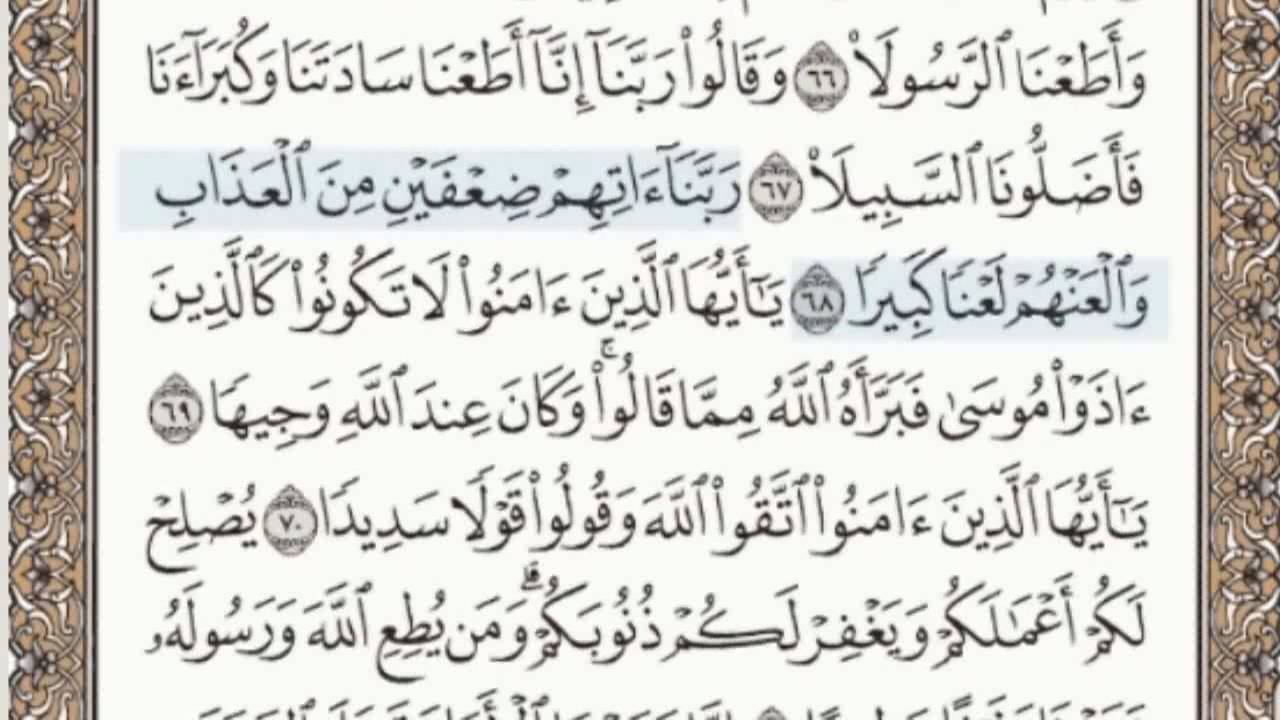 وَأَطَعْنَا ٱلرَّسُولَا۠ ٦٦ وَقَالُوا۟ رَبَّنَآ إِنَّآ أَطَعْنَا سَادَتَنَا وَكُبَرَآءَنَا
فَأَضَلُّونَا ٱلسَّبِيلَا۠ ٦٧ رَبَّنَآ ءَاتِهِمْ ضِعْفَيْنِ مِنَ ٱلْعَذَابِ
وَٱلْعَنْهُمْ لَعْنًا كَبِيرًا ٦٨ يَٰٓأَيُّهَا ٱلَّذِينَ ءَامَنُوا۟ لَا تَكُونُوا۟ كَٱلَّذِينَ
ءَاذَوْا۟ مُوسَىٰ فَبَرَّأَهُ ٱللَّهُ مِمَّا قَالُوا۟ ۚ وَكَانَ عِندَ ٱللَّهِ وَجِيهًا ٦٩
يَٰٓأَيُّهَا ٱلَّذِينَ ءَامَنُوا۟ ٱتَّقُوا۟ ٱللَّهَ وَقُولُوا۟ قَوْلًا سَدِيدًا ٧٠ يُصْلِحْ
لَكُمْ أَعْمَٰلَكُمْ وَيَغْفِرْ لَكُمْ ذُنُوبَكُمْ ۗ وَمَن يُطِعِ ٱللَّهَ وَرَسُولَهُۥ